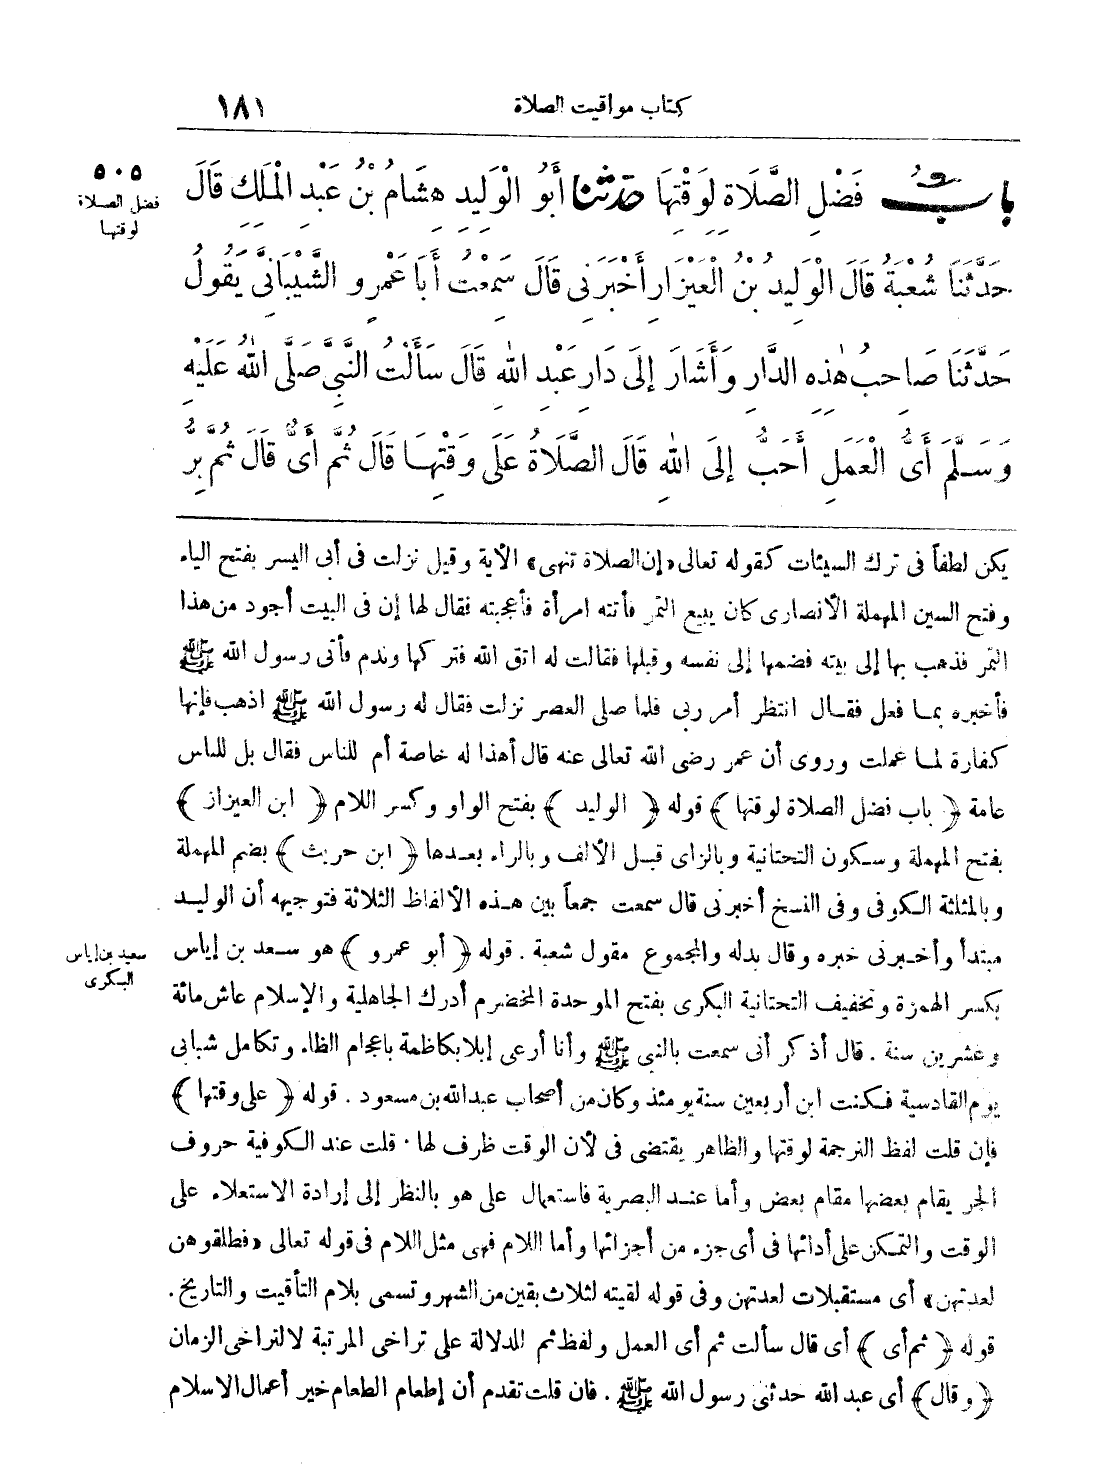 كتاب مواقيت الصلاة
١٨١
٥٠٥
فضل الصلاة
لوقتها
باب فَضْلِ الصَّلَاةِ لِوَقْتِهَا حدثنا أَبُو الْوَلِيدِ هِشَامُ بْنُ عَبْدِ الْمَلِكِ قَالَ
حَدَّثَنَا شُعْبَةُ قَالَ الْوَلِيدُ بْنُ الْعَيْزَارِ أَخْبَرَنِى قَالَ سَمِعْتُ أَبَا عَمْرٍو الشَّيْبَانِىَّ يَقُولُ
حَدَّثَنَا صَاحِبُ هٰذِهِ الدَّارِ وَأَشَارَ إِلَى دَارِ عَبْدِ اللّٰهِ قَالَ سَأَلْتُ النَّبِىَّ صَلَّى اللّٰهُ عَلَيْهِ
وَسَلَّمَ أَىُّ الْعَمَلِ أَحَبُّ إِلَى اللّٰهِ قَالَ الصَّلَاةُ عَلَى وَقْتِهَا قَالَ ثُمَّ أَىٌّ قَالَ ثُمَّ بِرُّ
يكن لطفاً فى ترك السيئات كقوله تعالى «إن الصلاة تنهى» الآية وقيل نزلت فى أبى اليسر بفتح الياء
وفتح السين المهملة الأنصارى كان يبيع التمر فأتته امرأة فأعجبته فقال لها إن فى البيت أجود من هذا
التمر فذهب بها إلى بيته فضمها إلى نفسه وقبلها فقالت له اتق الله فتركها وندم فأتى رسول الله ﷺ
فأخبره بما فعل فقال انتظر أمر ربى فلما صلى العصر نزلت فقال له رسول الله ﷺ اذهب فإنها
كفارة لما عملت وروى أن عمر رضى الله تعالى عنه قال أهذا له خاصة أم للناس فقال بل للناس
عامة ﴿باب فضل الصلاة لوقتها﴾ قوله ﴿الوليد﴾ بفتح الواو وكسر اللام ﴿ابن العيزاز﴾
بفتح المهملة وسكون التحتانية وبالزاى قبل الألف وبالراء بعدها ﴿ابن حريث﴾ بضم المهملة
وبالمثلثة الكوفى وفى النسخ أخبرنى قال سمعت جمعاً بين هذه الألفاظ الثلاثة فتوجيهه أن الوليد
مبتدأ وأخبرنى خبره وقال بدله والمجموع مقول شعبة . قوله ﴿أبو عمرو﴾ هو سعد بن إياس
سعيد بن إياس
البكرى
بكسر الهمزة وتخفيف التحتانية البكرى بفتح الموحدة المخضرم أدرك الجاهلية والإسلام عاش مائة
وعشرين سنة . قال أذكر أنى سمعت بالنبى ﷺ وأنا أرعى إبلا بكاظمة باعجام الظاء وتكامل شبابى
يوم القادسية فكنت ابن أربعين سنة يومئذ وكان من أصحاب عبد الله بن مسعود . قوله ﴿على وقتها﴾
فإن قلت لفظ الترجمة لوقتها والظاهر يقتضى فى لأن الوقت ظرف لها . قلت عند الكوفية حروف
الجر يقام بعضها مقام بعض وأما عند البصرية فاستعمال على هو بالنظر إلى إرادة الاستعلاء على
الوقت والتمكن على أدائها فى أى جزء من أجزائها وأما اللام فهى مثل اللام فى قوله تعالى «فطلقوهن
لعدتهن» أى مستقبلات لعدتهن وفى قوله لقيته لثلاث بقين من الشهر وتسمى بلام التأقيت والتاريخ .
قوله ﴿ثم أى﴾ أى قال سألت ثم أى العمل ولفظ ثم للدلالة على تراخى المرتبة لا لتراخى الزمان
﴿وقال﴾ أى عبد الله حدثنى رسول الله ﷺ . فان قلت تقدم أن إطعام الطعام خير أعمال الاسلام